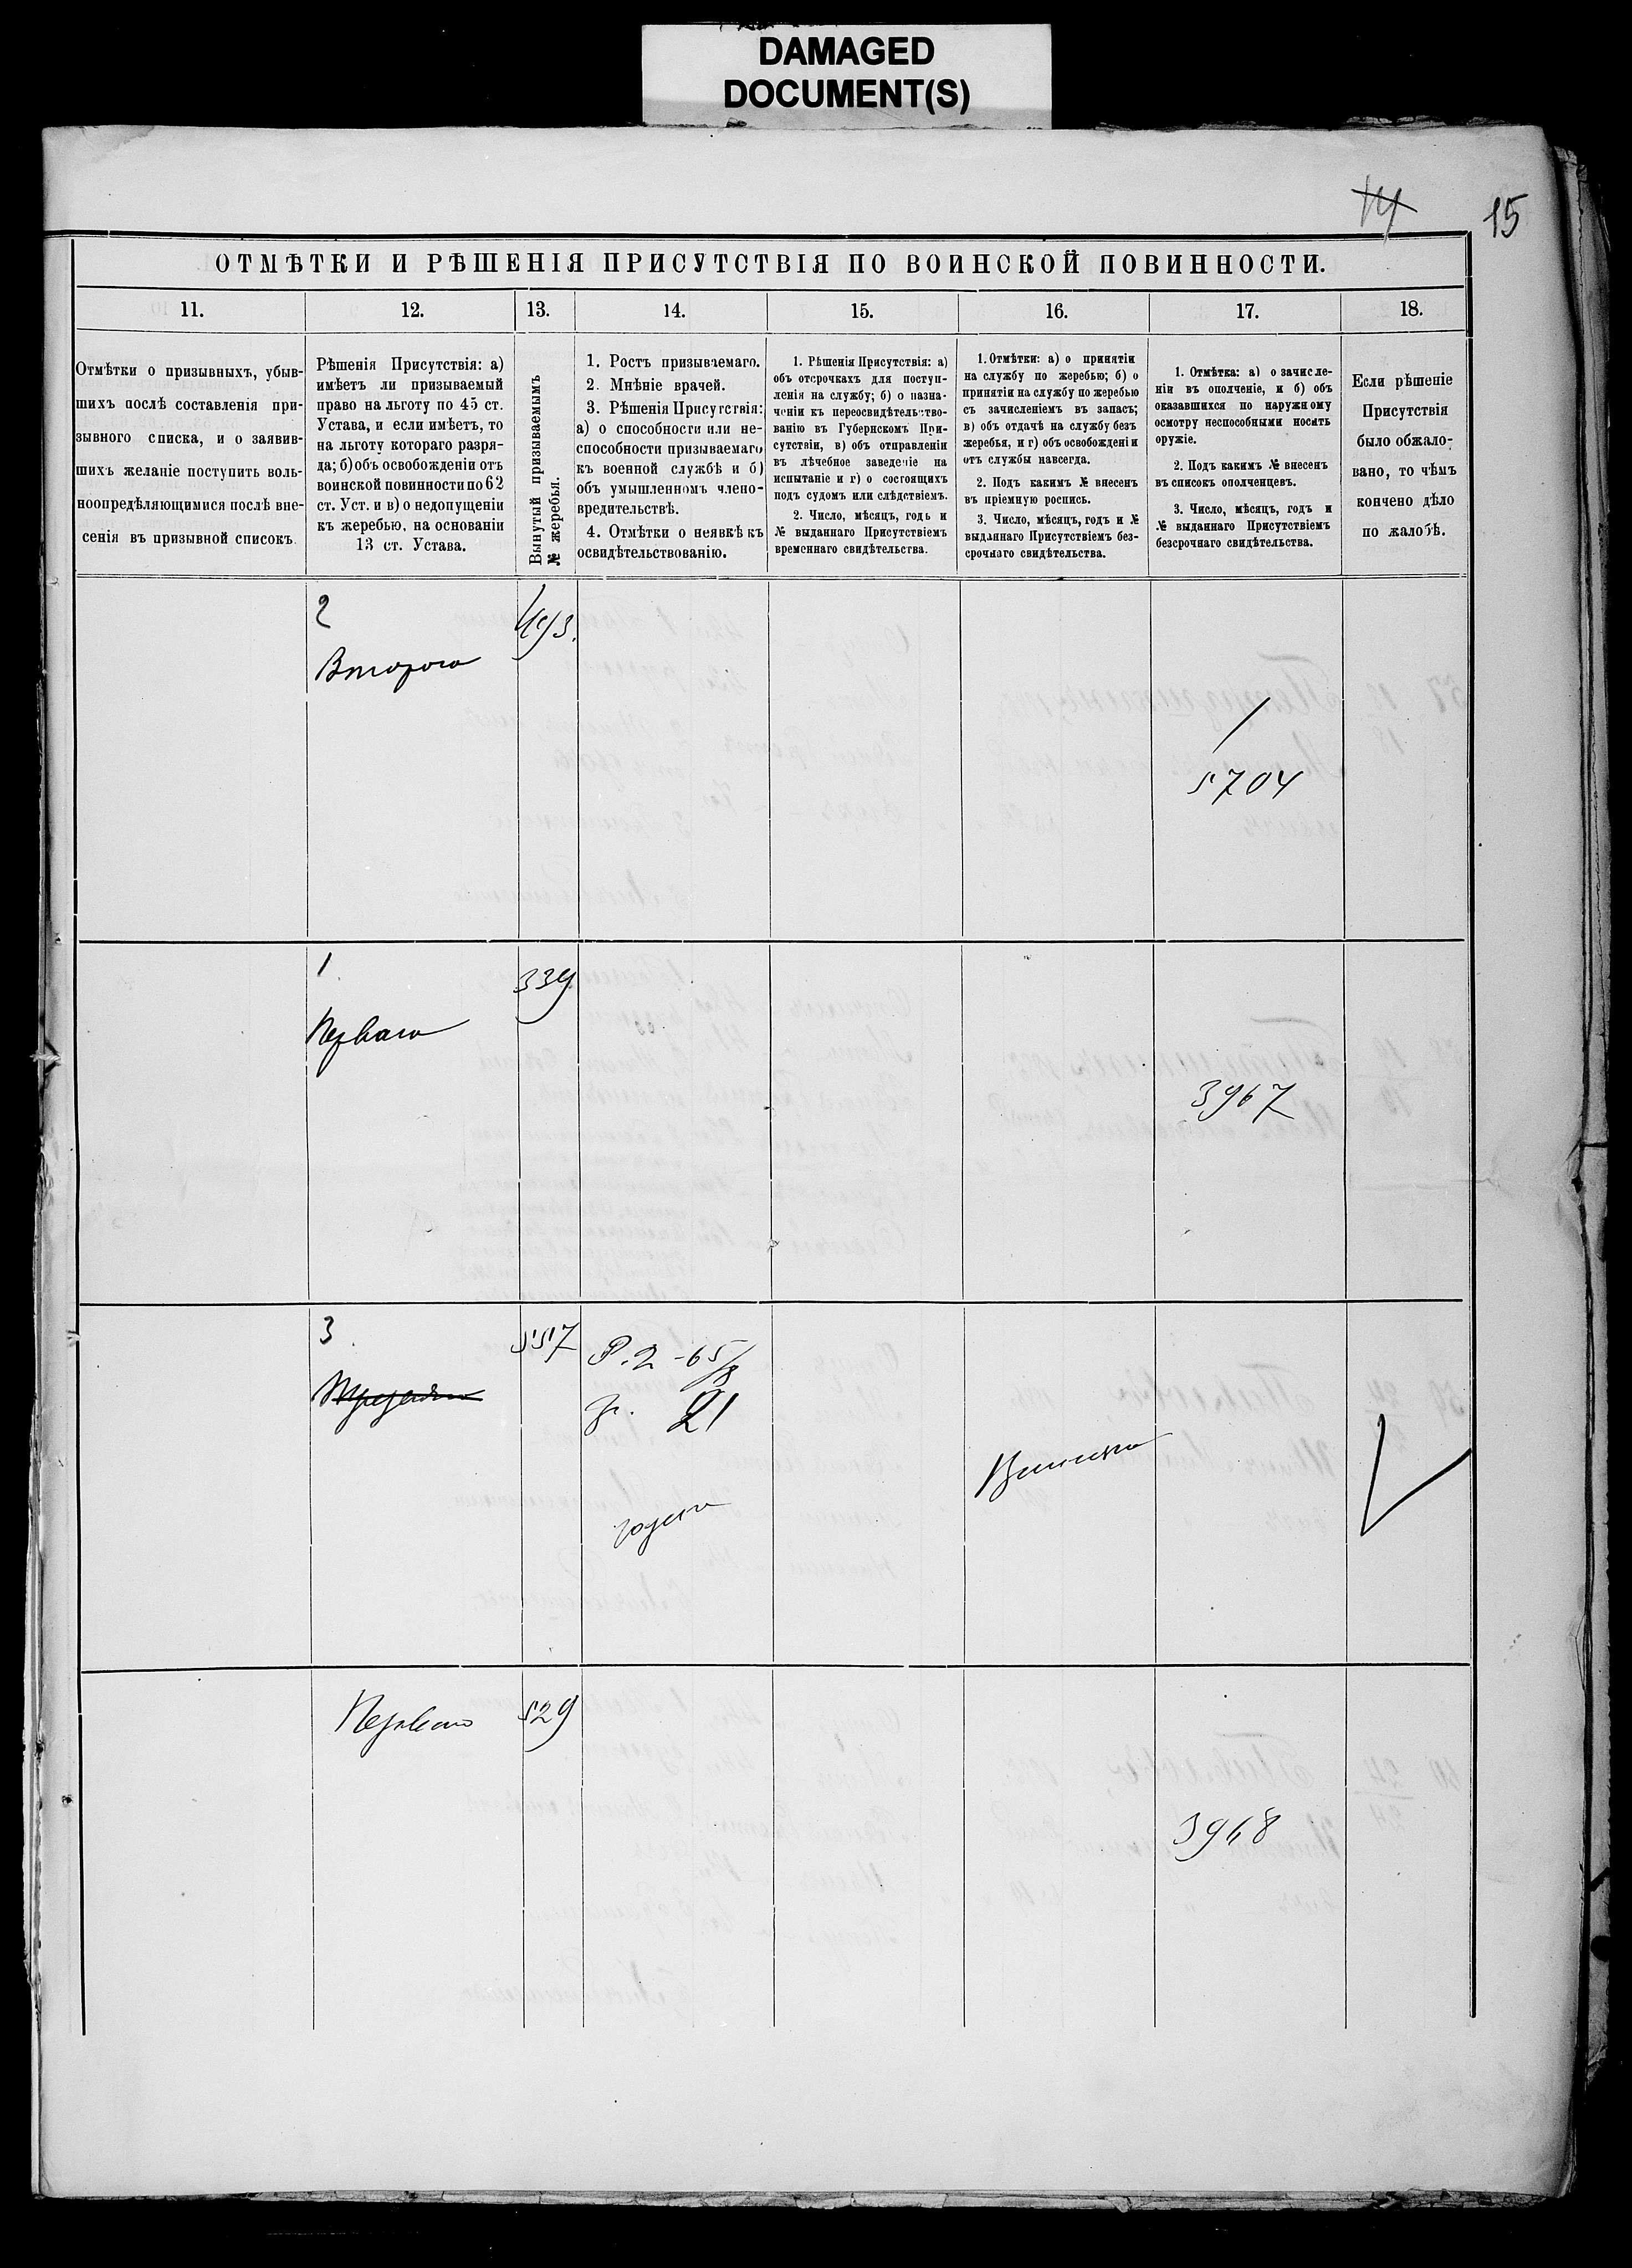 DAMAGED
DOCUMENT(S)
14
15
ОТМѢТКИ И РѢШЕНІЯ ПРИСУТСТВІЯ ПО ВОИНСКОЙ ПОВИННОСТИ.
11.
12.
13.
14.
15.
16.
17.
18.
Отмѣтки о призывныхъ, убыв-
шихъ послѣ составленія при-
зывного списка, и о заявив-
шихъ желаніе поступить воль-
ноопредѣляющимися послѣ вне-
сенія въ призывной списокъ.
Рѣшенія Присутствія: а)
имѣетъ ли призываемый
право на льготу по 45 ст.
Устава, и если имѣетъ, то
на льготу котораго разря-
да; б) объ освобожденіи отъ
воинской повинности по 62
ст. Уст. и в) о недопущеніи
къ жеребью, на основаніи
13 ст. Устава.
Вынутый призываемымъ
№ жеребья.
1. Ростъ призываемаго.
2. Мнѣніе врачей.
3. Рѣшенія Присутствія:
а) о способности или не-
способности призываемаго
къ военной службѣ и б)
объ умышленномъ члено-
вредительствѣ.
4. Отмѣтки о неявкѣ къ
освидѣтельствованію.
1. Рѣшенія Присутствія: а)
объ отсрочкахъ для поступ-
ленія на службу; б) о назна-
ченіи къ переосвидѣтельство-
ванію въ Губернскомъ При-
сутствіи, в) объ отправленіи
въ лѣчебное заведеніе на
испытаніе и г) о состоящихъ
подъ судомъ или слѣдствіемъ.
2. Число, мѣсяцъ, годъ и
№ выданнаго Присутствіемъ
временнаго свидѣтельства.
1. Отмѣтки: а) о принятіи
на службу по жеребью; б) о
принятіи на службу по жеребью
съ зачисленіемъ въ запасъ;
в) объ отдачѣ на службу безъ
жеребья, и г) объ освобожденіи
отъ службы навсегда.
2. Подъ какимъ № внесенъ
въ пріемную роспись.
3. Число, мѣсяцъ, годъ и №
выданнаго Присутствіемъ без-
срочнаго свидѣтельства.
1. Отмѣтка: а) о зачисле-
ніи въ ополченіе, и б) объ
оказавшихся по наружному
осмотру неспособными носить
оружіе.
2. Подъ какимъ № внесенъ
въ списокъ ополченцевъ.
3. Число, мѣсяцъ, годъ и
№ выданнаго Присутствіемъ
безсрочнаго свидѣтельства.
Если рѣшеніе
Присутствія
было обжало-
вано, то чѣмъ
кончено дѣло
по жалобѣ.
2
Второго
493.
5704
1
Перваго
339
3967
3
Третьяго
557
Р. 2 - 6 5/8
Гр. 21
годенъ
Перваго
529
3968